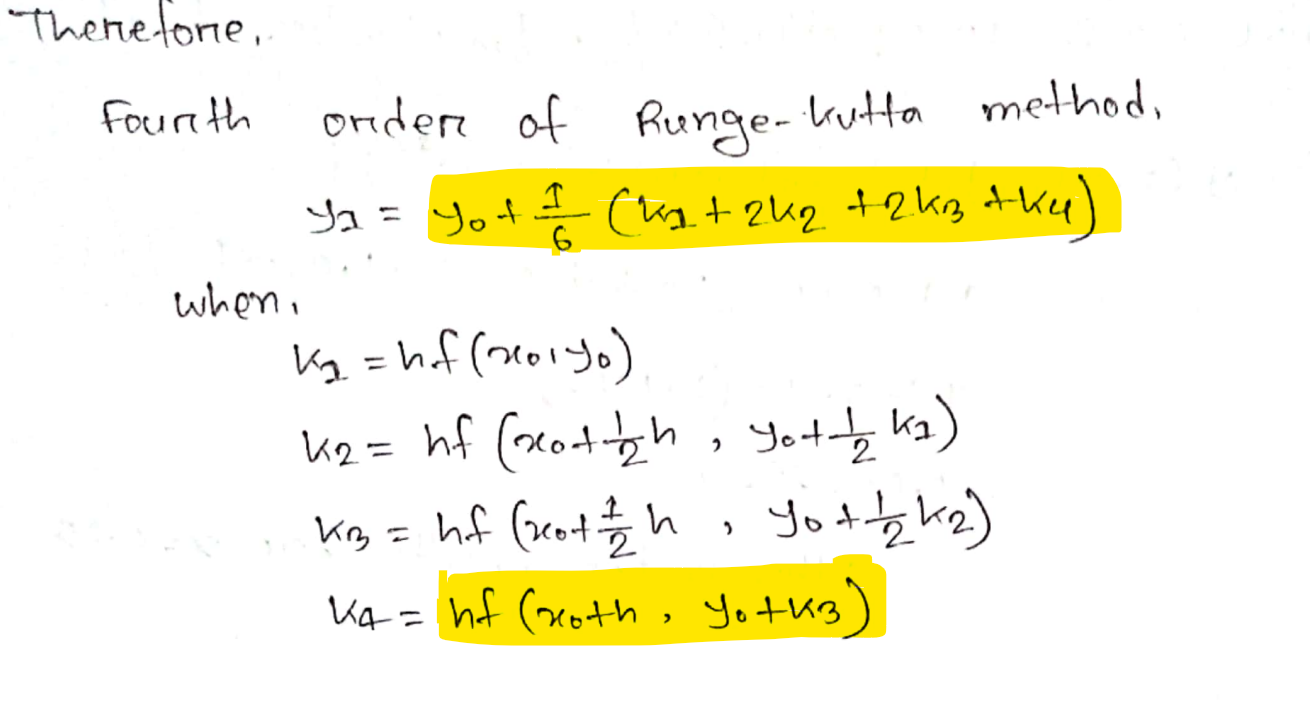 Therefore,
Fourth order of Runge-kutta method,
y₁ = y₀ + 1/6 (k₁ + 2k₂ + 2k₃ + k₄)
when,
k₁ = hf (x₀, y₀)
k₂ = hf (x₀ + 1/2 h , y₀ + 1/2 k₁)
k₃ = hf (x₀ + 1/2 h , y₀ + 1/2 k₂)
k₄ = hf (x₀ + h , y₀ + k₃)